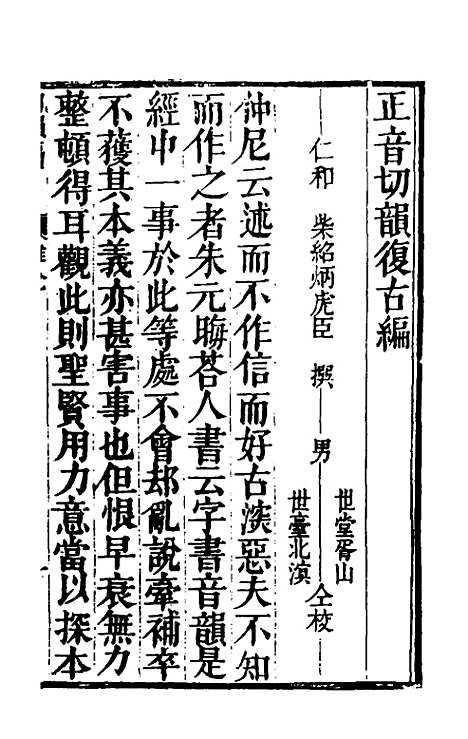 正音切韻復古編
仁和　柴紹炳虎臣　撰　男　世堂胥山　世臺北溟　仝梭
仲尼云述而不作信而好古深惡夫不知
而作之者朱元晦荅人書云字書音韻是
經中一事於此等處不會却亂說牽補卒
不獲其本義亦甚害事也但恨早衰無力
整頓得耳觀此則聖賢用力意當以探本